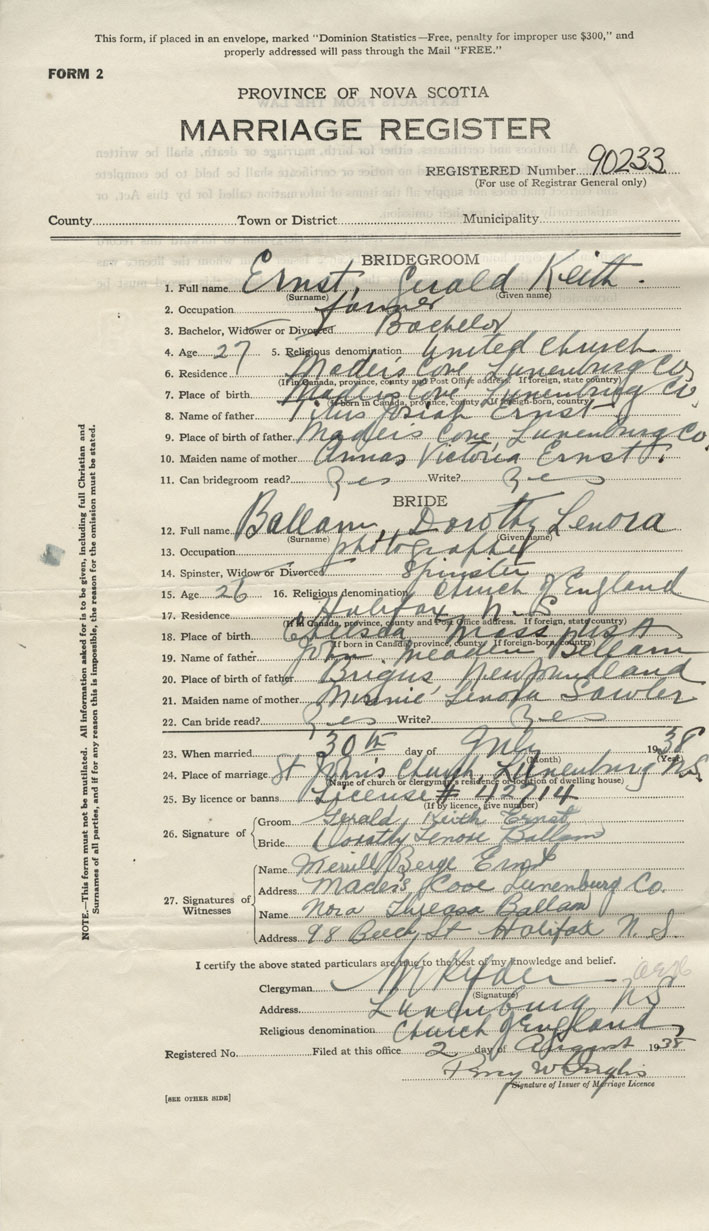 This form, if placed in an envelope, marked "Dominion Statistics—Free, penalty for improper use $300," and
properly addressed will pass through the Mail "FREE."
FORM 2
PROVINCE OF NOVA SCOTIA
MARRIAGE REGISTER
REGISTERED Number 90233
(For use of Registrar General only)
County Town or District Municipality
BRIDEGROOM
1. Full name Ernst, Gerald Keith.
(Surname) (Given name)
2. Occupation farmer
3. Bachelor, Widower or Divorced Bachelor
4. Age 27 5. Religious denomination United Church
6. Residence Mader's Cove Lunenburg Co,
(If in Canada, province, county and Post Office address. If foreign, state country)
7. Place of birth Mader's Cove, Lunenburg Co,
(If born in Canada, province, county. If foreign-born, country)
8. Name of father Titus Josiah Ernst
9. Place of birth of father Mader's Cove, Lunenburg Co.
10. Maiden name of mother Annas Victoria Ernst.
11. Can bridegroom read? Yes Write? Yes
BRIDE
12. Full name Ballam, Dorothy Lenora
(Surname) (Given name)
13. Occupation photographer
14. Spinster, Widow or Divorced Spinster
15. Age 26 16. Religious denomination Church of England
17. Residence Halifax N.S.
(If in Canada, province, county and Post Office address. If foreign, state country)
18. Place of birth Mass USA
(If born in Canada, province, county. If foreign-born, country)
19. Name of father John Ballam
20. Place of birth of father Brigus Newfoundland
21. Maiden name of mother Minnie Lenora Sawler
22. Can bride read? Yes Write? Yes
23. When married 30th day of July 1938
(Month) (Year)
24. Place of marriage St John's Church, Lunenburg N.S.
(Name of church or clergyman's residence or location of dwelling house)
25. By licence or banns License # 42714
(If by licence, give number)
26. Signature of
Groom Gerald Keith Ernst
Bride Dorothy Lenore Ballam
27. Signatures of Witnesses
Name Merrill Ernst
Address Mader's Cove Lunenburg Co.
Name Nora Ballam
Address 98 Beech St Halifax N.S.
I certify the above stated particulars are true to the best of my knowledge and belief.
Clergyman Ryder
(Signature)
Address Lunenburg NS
Religious denomination Church of England
Registered No. Filed at this office 2 day of August 1938
Signature of Issuer of Marriage Licence
[SEE OTHER SIDE]
NOTE.—This form must not be mutilated. All information asked for is to be given, including full Christian and
Surnames of all parties, and if for any reason this is impossible, the reason for the omission must be stated.